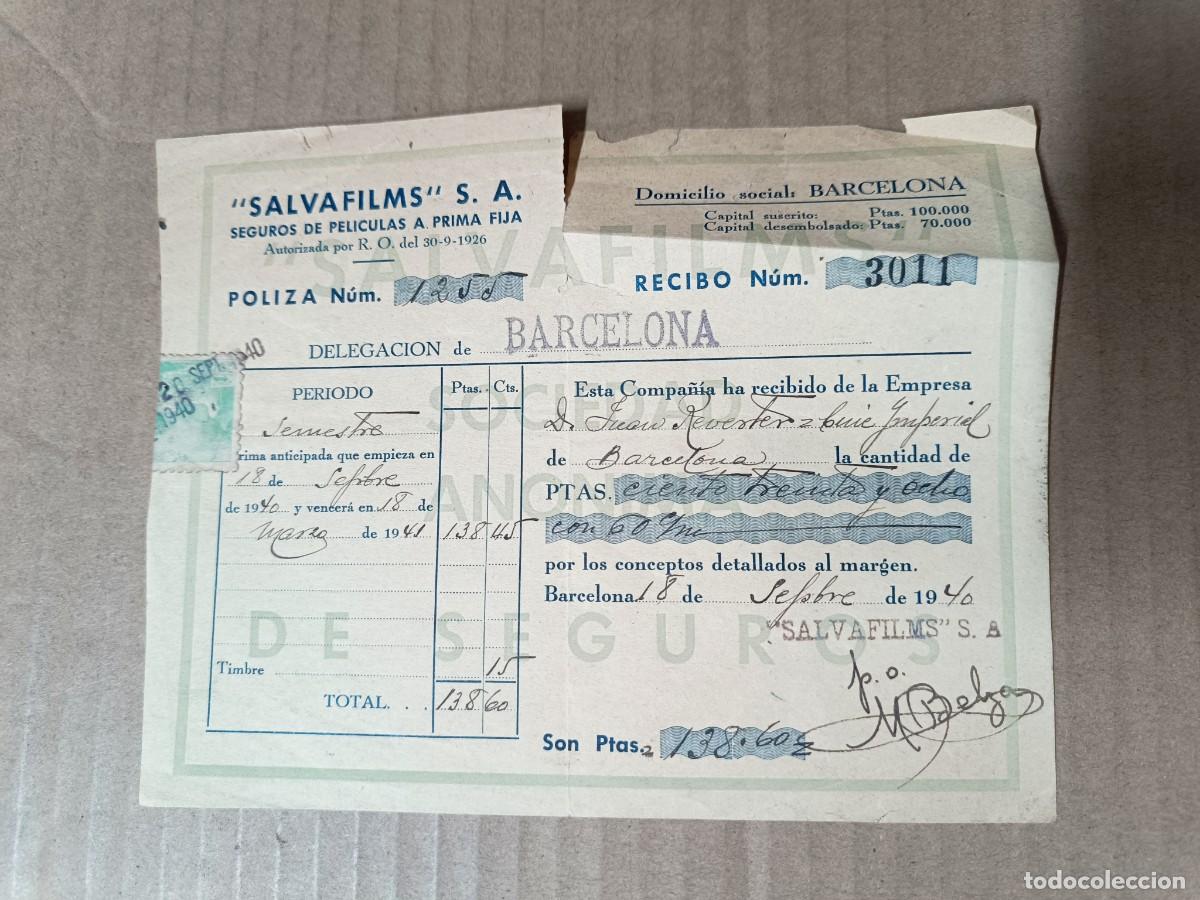 "SALVAFILMS" S. A.
SEGUROS DE PELICULAS A PRIMA FIJA
Autorizada por R. O. del 30-9-1926
Domicilio social: BARCELONA
Capital suscrito: Ptas. 100.000
Capital desembolsado: Ptas. 70.000
POLIZA Núm. 1255
RECIBO Núm. 3011
DELEGACION de BARCELONA
20 SEPT 1940
1940
PERIODO Ptas. Cts.
Semestre
rima anticipada que empieza en
18 de Sepbre
de 1940 y vencerá en 18 de
Marzo de 1941 138 45
Timbre 15
TOTAL. . . 138 60
Esta Compañía ha recibido de la Empresa
D. Juan Reverter = Cine Imperial
de Barcelona la cantidad de
PTAS. ciento treinta y ocho
con 60 c/m
por los conceptos detallados al margen.
Barcelona 18 de Sepbre de 1940
"SALVAFILMS" S. A
p.o.
Son Ptas. 138.60
"SALVAFILMS"
SOCIEDAD
ANONIMA
DE SEGUROS
todocoleccion